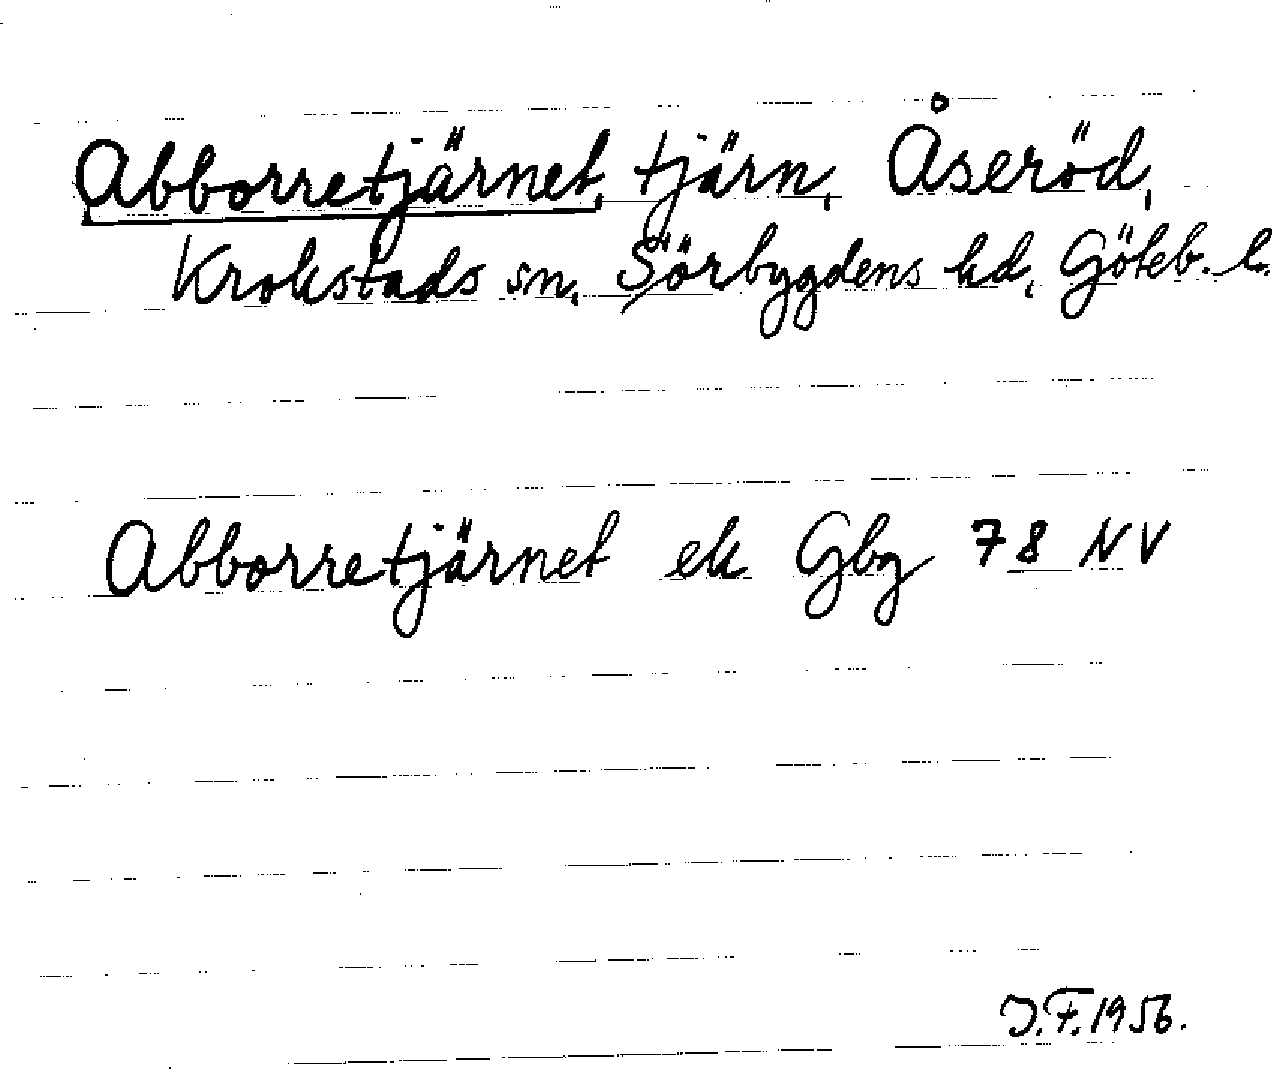 Abborretjärnet, tjärn, Åseröd,
Krokstads sn, Sörbygdens hd, Göteb. l.
Abborretjärnet ek Gbg 78 NV
J.F. 1956.